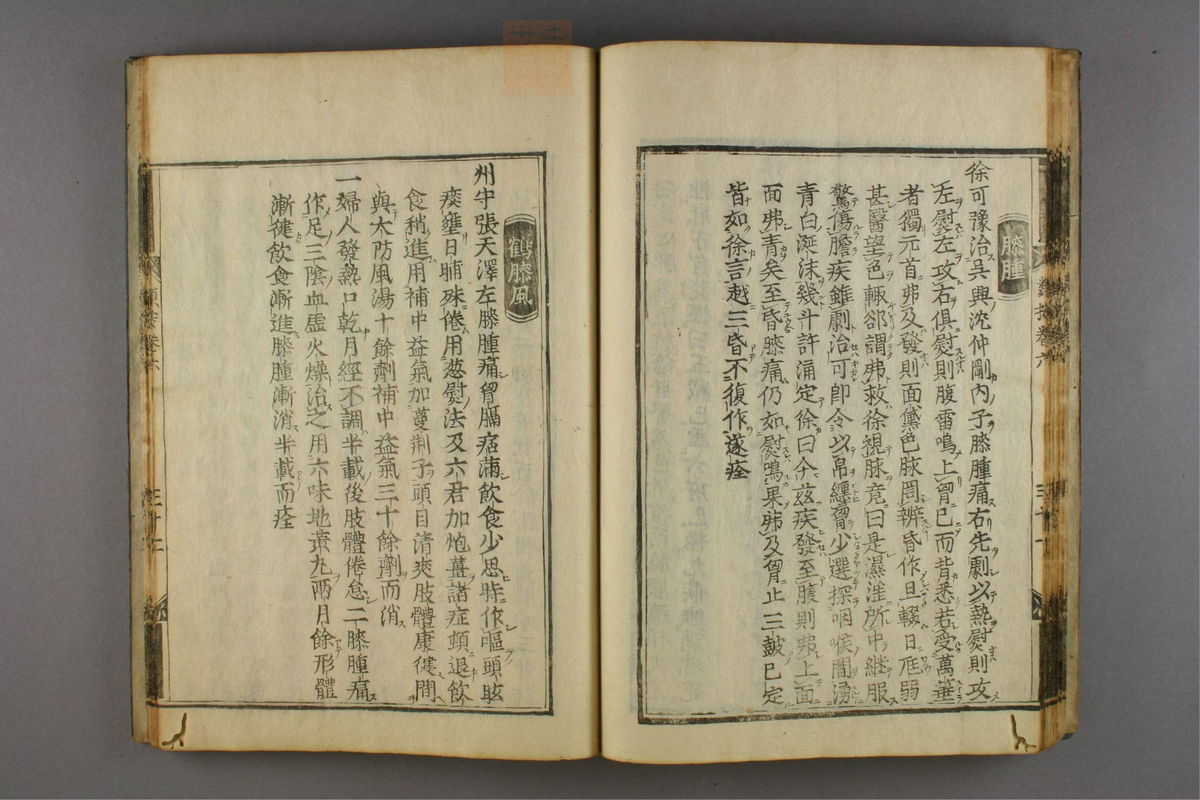 膝腫
徐可豫治吳興沈仲剛內子膝腫痛右先劇以熱熨則攻
左熨左攻右俱熨則腹雷鳴上胷已而背悉若受萬箠
者獨元首弗及發則面黛色脉罔辨昏作旦輟日尫弱
甚醫望色輙郤謂弗救徐視脉竟曰是濕淫所中繼服
驚傷膽疾雖劇治可卽令以帛纏胷少選探咽喉間湧
青白涎沫幾斗許涌定徐曰今茲疾發至腹則弗上面
面弗青矣至昏膝痛仍如熨鳴果弗及胷止三皷已定
皆如徐言越三昏不復作遂痊
鶴膝風
州守張天澤左膝腫痛胷膈痞滿飲食少思時作嘔頭眩
痰壅日晡殊倦用葱熨法及六君加炮薑諸症頓退飲
食稍進用補中益氣加蔓荆子頭目清爽肢體康健間
與大防風湯十餘劑補中益氣三十餘劑而消
一婦人發熱口乾月經不調半載後肢體倦怠二膝腫痛
作足三陰血虛火燥治之用六味地黃丸兩月餘形體
漸健飲食漸進膝腫漸消半載而痊